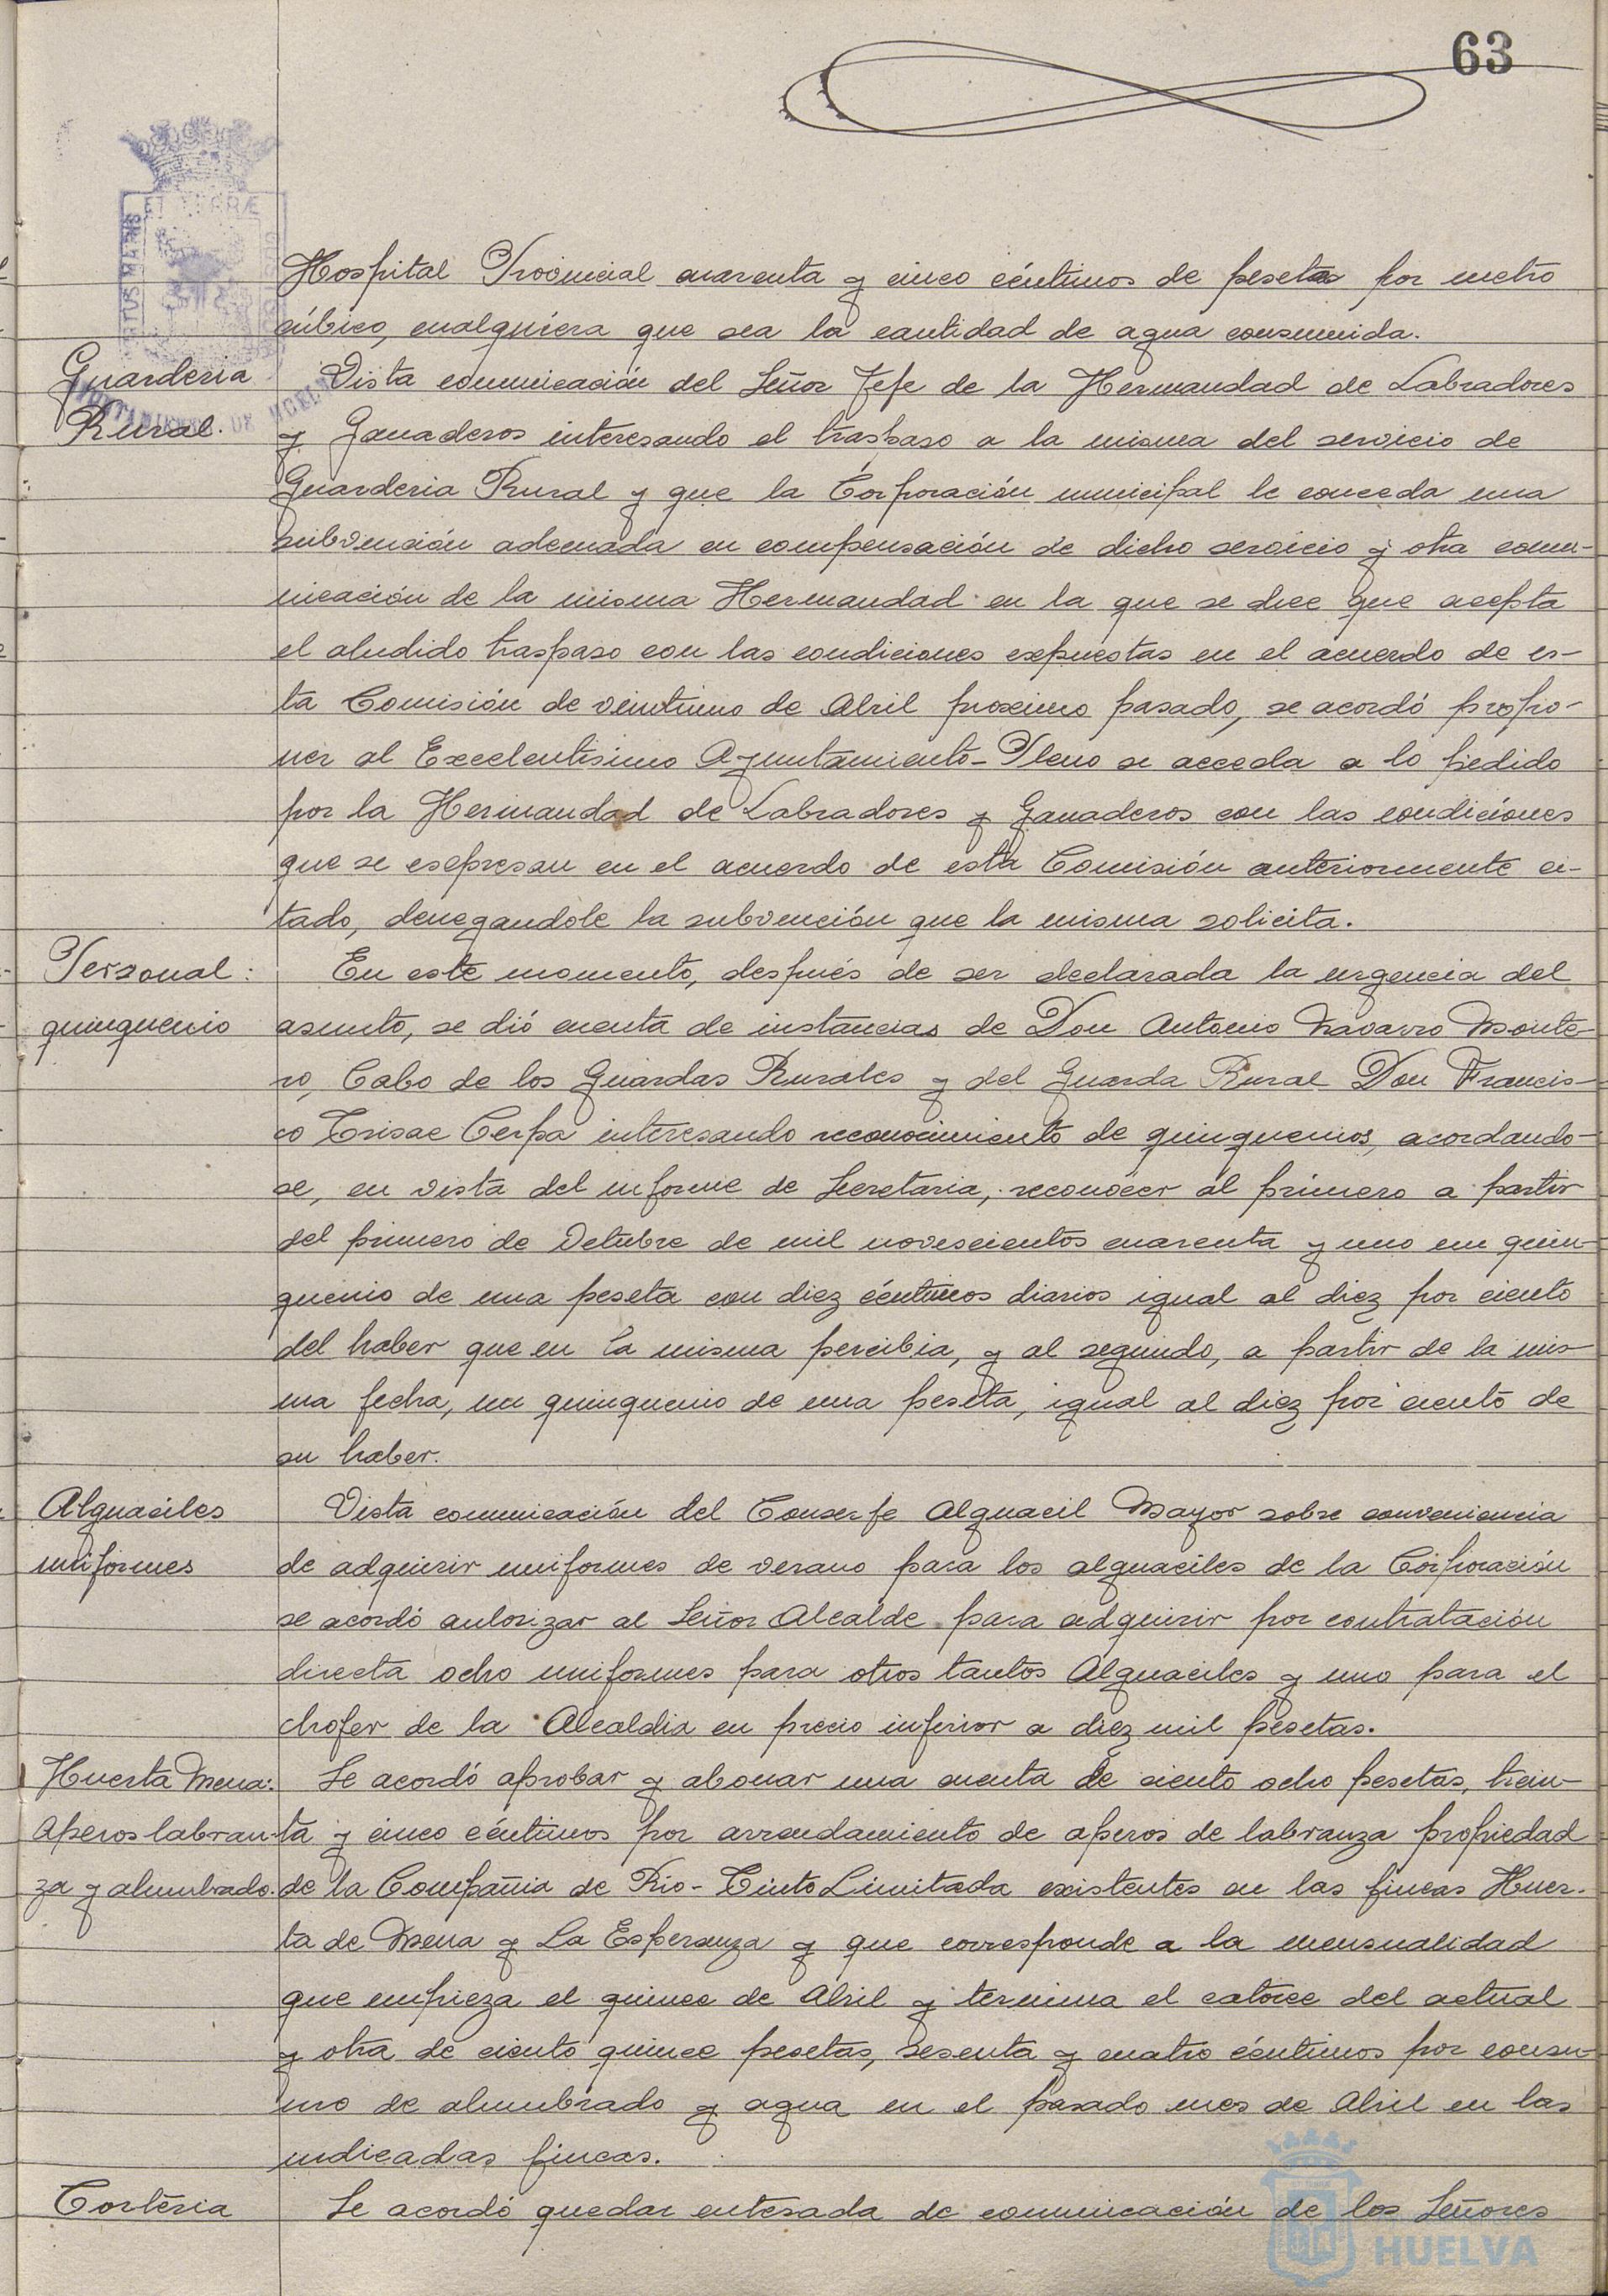 63
Hospital Provincial cuarenta y cinco céntimos de peseta por metro
cúbico, cualquiera que sea la cantidad de agua consumida.
Guarderia
Rural.
Vista comunicación del Señor Jefe de la Hermandad de Labradores
y Ganaderos interesando el traspaso a la misma del servicio de
Guarderia Rural y que la Corporación municipal le conceda una
subvención adecuada en compensación de dicho servicio y otra comu-
nicación de la misma Hermandad en la que se dice que acepta
el aludido traspaso con las condiciones expuestas en el acuerdo de es-
ta Comisión de veintiuno de Abril proximo pasado, se acordó propo-
ner al Excelentisimo Ayuntamiento-Pleno se acceda a lo pedido
por la Hermandad de Labradores y Ganaderos con las condiciones
que se expresan en el acuerdo de esta Comisión anteriormente ci-
tado, denegandole la subvención que la misma solicita.
Personal:
quinquenio
En este momento, después de ser declarada la urgencia del
asunto, se dió cuenta de instancias de Don Antonio Navarro Monte-
ro, Cabo de los Guardas Rurales y del Guarda Rural Don Francis-
co Cerpa interesando reconocimiento de quinquenios, acordando-
se, en vista del informe de Secretaria, reconocer al primero a partir
del primero de Octubre de mil novescientos cuarenta y uno un quin-
quenio de una peseta con diez céntimos diarios igual al diez por ciento
del haber que en la misma percibia, y al segundo, a partir de la mis-
ma fecha, un quinquenio de una peseta, igual al diez por ciento de
su haber.
Alguaciles
uniformes
Vista comunicación del Conserje Alguacil Mayor sobre conveniencia
de adquirir uniformes de verano para los alguaciles de la Corporación
se acordó autorizar al Señor Alcalde para adquirir por contratación
directa ocho uniformes para otros tantos Alguaciles y uno para el
chofer de la Alcaldia en precio inferior a diez mil pesetas.
Huerta Mena:
Aperos labran-
za y alumbrado.
Se acordó aprobar y abonar una cuenta de ciento ocho pesetas, trein-
ta y cinco céntimos por arrendamiento de aperos de labranza propiedad
de la Compañia de Rio-Tinto Limitada existentes en las fincas Huer-
ta de Mena y La Esperanza y que corresponde a la mensualidad
que empieza el quince de Abril y termina el catorce del actual
y otra de ciento quince pesetas, sesenta y cuatro céntimos por consu-
mo de alumbrado y agua en el pasado mes de Abril en las
indicadas fincas.
Corteria
Se acordó quedar enterada de comunicación de los Señores
HUELVA